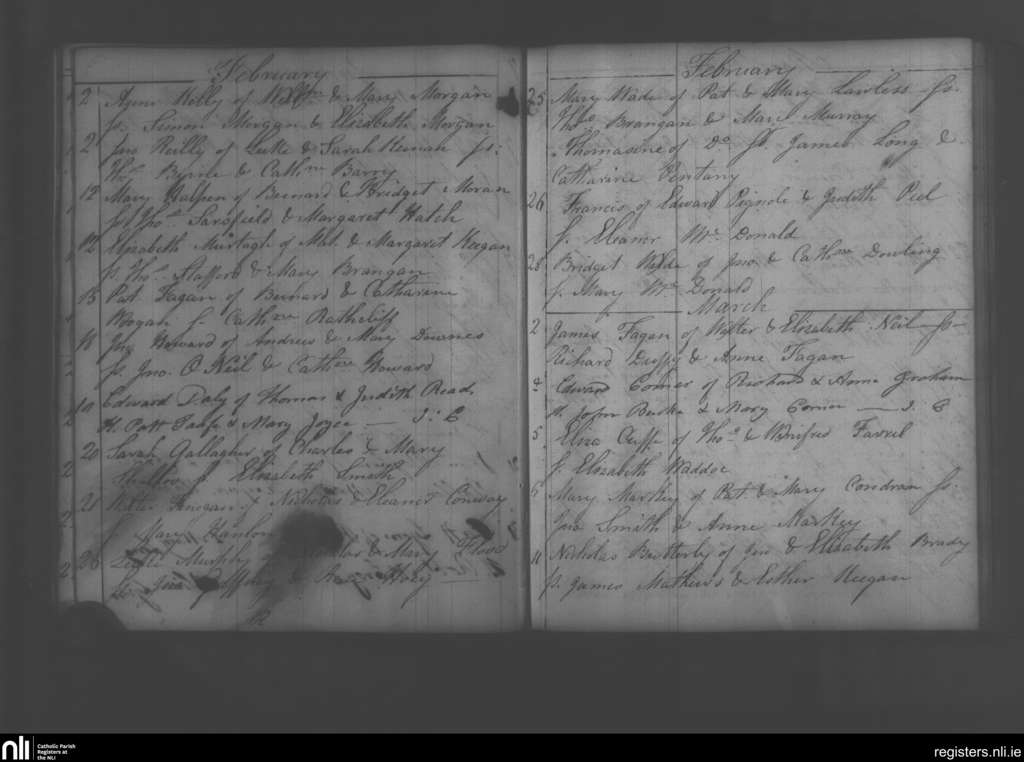 February
2 Anne Kelly of Willm & Mary Morgan
fs. Simon Morgan & Elizabeth Morgan
2 Jno Reilly of Luke & Sarah Keenan fs:
Thos Byrne & Cathne Barry
12 Mary Halpen of Bernard & Bridget Moran
fs. Thos. Sarsfield & Margaret Hatch
12 Elizabeth Murtagh of & Margaret Keegan
fs. Thos. Stafford & Mary Brangan
15 Pat Fagan of Bernard & Catharine
Hoogan f. Cathne Rathcliff
18 Jno Howard of Andrew & Mary Downes
fs. Jno. O Neil & Cathne Howard
19 Edward Daly of Thomas & Judith Read,
fs. Patt Taafe & Mary Joyce — J: C
20 Sarah Gallagher of Charles & Mary
f. Elizabeth Smith
21 of Nicholas & Eleanor Conway
f. Mary Hanlon
26 Murphy of & Mary
fs. Jno. &
February
25 Mary Wade of Pat & Mary Lawless fs.
Thos Brangan & Mary Murray
Thomasene of Do. fs. James Long &
Catharine
26 Francis of Edward & Judith Peel
f. Eleanor Mc Donald
28 Bridget Wilde of Jno. & Cathne Dowling
f. Mary Mc Donald
March
2 James Fagan of Walter & Elizabeth Neil fs
Richard Duffy & Anne Fagan
4 Edward Comer of Richard & Anne Graham
fs. John Burke & Mary Comer — J. C
5 Eliza Cuffe of Thos. & Winifred Farrel
f. Elizabeth Waddoc
6 Mary Markey of Pat & Mary Condran fs.
Jno Smith & Anne Markey
11 Nicholas Butterly of Jno & Elizabeth Brady
fs. James Mathews & Esther Keegan
nli
Catholic Parish
Registers at
the NLI
registers.nli.ie